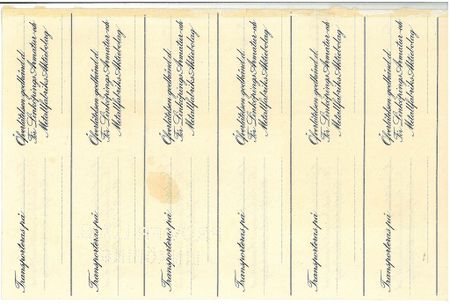 Transporteras på
Öfverlåtelsen godkänd d.
För Linköpings Armatur- och
Metallfabriks Aktiebolag
Transporteras på
Öfverlåtelsen godkänd d.
För Linköpings Armatur- och
Metallfabriks Aktiebolag
Transporteras på
Öfverlåtelsen godkänd d.
För Linköpings Armatur- och
Metallfabriks Aktiebolag
Transporteras på
Öfverlåtelsen godkänd d.
För Linköpings Armatur- och
Metallfabriks Aktiebolag
Transporteras på
Öfverlåtelsen godkänd d.
För Linköpings Armatur- och
Metallfabriks Aktiebolag
Transporteras på
Öfverlåtelsen godkänd d.
För Linköpings Armatur- och
Metallfabriks Aktiebolag